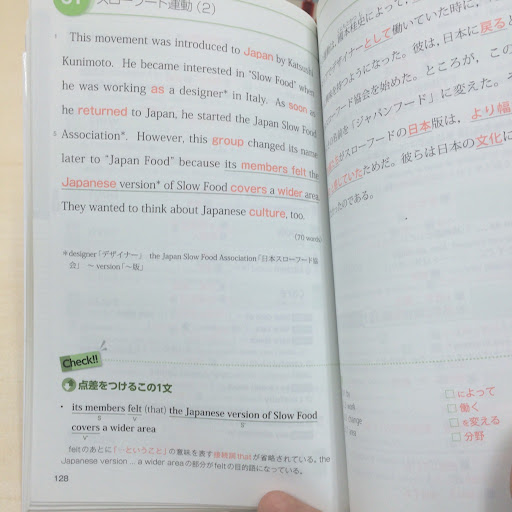 スローフード運動(2)
This movement was introduced to Japan by Katsushi
Kunimoto. He became interested in "Slow Food" when
he was working as a designer* in Italy. As soon as
he returned to Japan, he started the Japan Slow Food
5 Association*. However, this group changed its name
later to "Japan Food" because its members felt the
Japanese version* of Slow Food covers a wider area.
They wanted to think about Japanese culture, too.
(71 words)
*designer「デザイナー」 the Japan Slow Food Association「日本スローフード協
会」 ~ version「~版」
Check!!
点差をつけるこの1文
• its members felt (that) the Japanese version of Slow Food
S V S'
covers a wider area
V'
feltのあとに「…ということ」の意味を表す接続詞thatが省略されている。the
Japanese version ... a wider areaの部分がfeltの目的語になっている。
128
によって、
デザイナーとして働いていた時に、
持つようになった。彼は、日本に戻ると
ード協会を始めた。ところが、この
を「ジャパンフード」に変えた。
がスローフードの日本版は、より幅
していたためだ。彼らは日本の文化に
たのである。
□によって
□働く
change □を変える
□分野